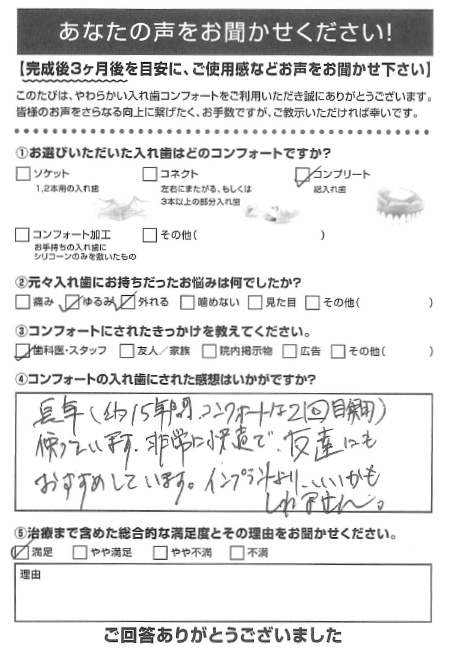 あなたの声をお聞かせください!
【完成後3ヶ月後を目安に、ご使用感などお声をお聞かせ下さい】
このたびは、やわらかい入れ歯コンフォートをご利用いただき誠にありがとうございます。
皆様のお声をさらなる向上に繋げたく、お手数ですが、ご教示いただければ幸いです。
①お選びいただいた入れ歯はどのコンフォートですか?
ソケット
1,2本用の入れ歯
コネクト
左右にまたがる、もしくは
3本以上の部分入れ歯
コンプリート
総入れ歯
コンフォート加工
お手持ちの入れ歯に
シリコーンのみを敷いたもの
その他( )
②元々入れ歯にお持ちだったお悩みは何でしたか?
痛み ゆるみ 外れる 噛めない 見た目 その他( )
③コンフォートにされたきっかけを教えてください。
歯科医・スタッフ 友人/家族 院内掲示物 広告 その他( )
④コンフォートの入れ歯にされた感想はいかがですか?
長年(約15年間、コンフォートは2回目使用)
使っています。非常に快適で、友達にも
おすすめしています。インプラントより、いいかも
しれません。
⑤治療まで含めた総合的な満足度とその理由をお聞かせください。
満足 やや満足 やや不満 不満
理由
ご回答ありがとうございました